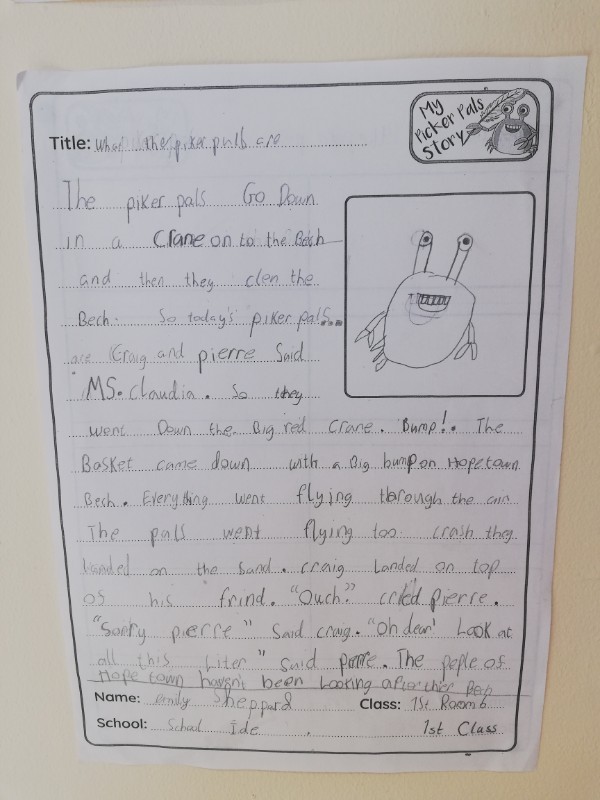 My
Picker Pals
Story
Title: What the piker pulls are
The piker pals Go Down
in a Crane on to the Bech
and then they clen the
Bech. So today's piker pals...
are Craig and pierre Said
MS. Claudia. So they
went Down the Big red crane. Bump!. The
Basket came down with a Big bump on Hopetown
Bech. Everything went flying through the air
The pals went flying too. crash they
Landed on the Sand. craig Landed on top
of his frind. "Ouch" cried pierre.
"Sorry pierre" Said craig. "Oh dear' Look at
all this Liter" Said pierre. The peple of
Hope town havsn't been Looking after thier Bech
Name: emily Sheppard Class: 1st Room 6
School: School Ide 1st Class